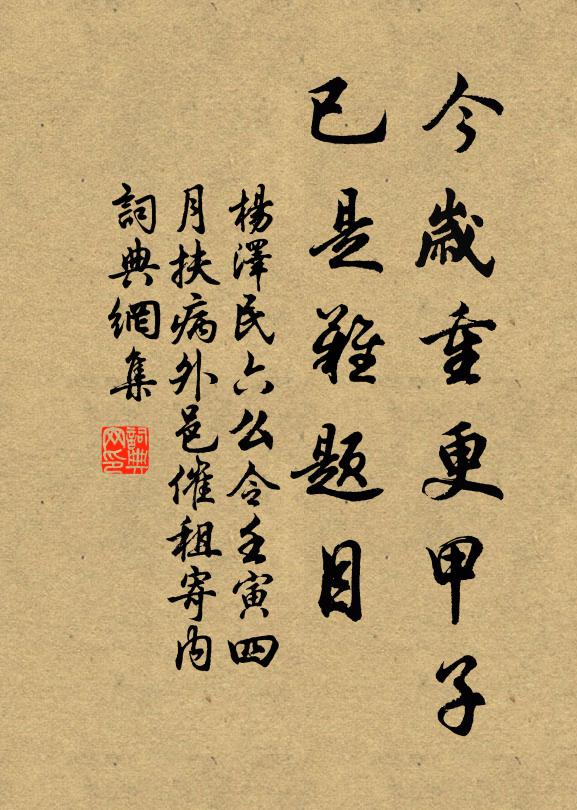 今歲重更甲子
已是難題目
楊澤民六么令壬寅四
月扶病外邑催租寄內
詞典網集
詞典網印